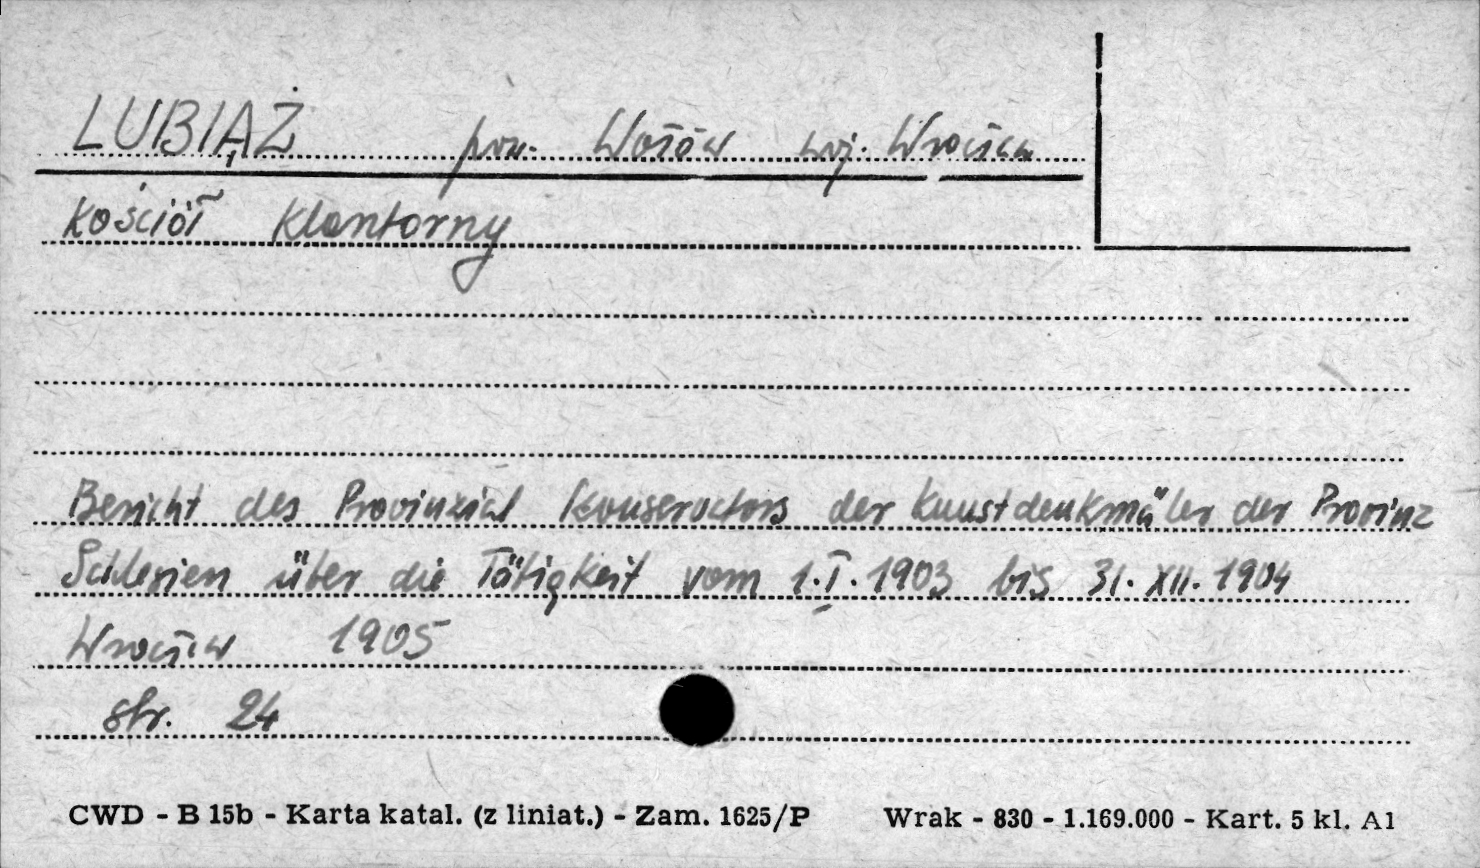 LUBIĄŻ pow. Wołów woj. Wrocław
Kościół Klasztorny
Bericht des Provinzial Konservators der Kunstdenkmäler der Provinz
Schlesien über die Tätigkeit vom 1.I.1903 bis 31.XII.1904
Wrocław 1905
str. 24
CWD - B 15b - Karta katal. (z liniat.) - Zam. 1625/P Wrak - 830 - 1.169.000 - Kart. 5 kl. A1